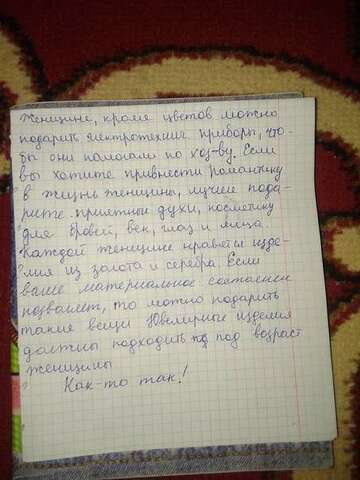 женщине, кроме цветов можно
подарить электротехнич. приборы, что-
бы они помогали по хоз-ву. Если
вы хотите привнести романтику
в жизнь женщины, лучше пода-
рите приятные духи, косметику
для бровей, век, глаз и лица.
Каждой женщине нравятся изде-
лия из золота и серебра. Если
ваше материальное состояние
позваляет, то можно подарить
такие вещи Ювелирные изделия
должны подходить под возраст
женщины
Как-то так!